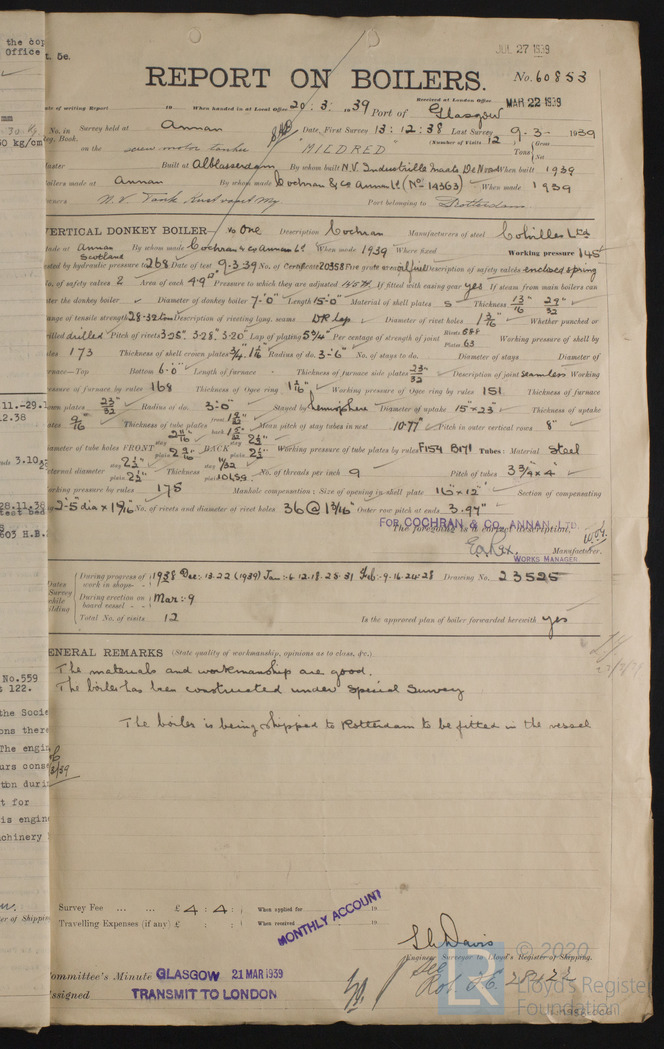 the cop
Office
t. 5c.
JUL 27 1939
REPORT ON BOILERS.
No. 60853
Received at London Office
MAR 22 1939
ate of writing Report 19 When handed in at Local Office 20:3:1939 Port of Glasgow
No. in Survey held at Annan Date, First Survey 13:12:38 Last Survey 9-3-1939
Reg. Book. (Number of Visits 12)
on the screw motor tanker "MILDRED" Tons Gross Net
Master Built at Alblasserdam By whom built N.V. Industrielle Maats De Noord When built 1939
Boilers made at Annan By whom made Cochran & Co Annan Ld (No 14363) When made 1939
Owners N.V. Tank Port belonging to Rotterdam
VERTICAL DONKEY BOILER— No One Description Cochran Manufacturers of steel Colvilles Ltd
Made at Annan Scotland By whom made Cochran & Co Annan Ld When made 1939 Where fixed Working pressure 145
ested by hydraulic pressure to 268 Date of test 9.3.39 No. of Certificate 20358 Fire grate area oil fuel Description of safety valves enclosed spring
No. of safety valves 2 Area of each 4.9" Pressure to which they are adjusted If fitted with easing gear yes If steam from main boilers can
ter the donkey boiler Diameter of donkey boiler 7'-0" Length 15'-0" Material of shell plates S Thickness 13/16 29/32"
Range of tensile strength 28-32 tons Description of riveting long. seams DR Lap Diameter of rivet holes 1 3/16" Whether punched or
drilled drilled Pitch of rivets 3.25" 3.28" 3.20" Lap of plating 5 3/4" Per centage of strength of joint Rivets Plates 63 Working pressure of shell by
rules 173 Thickness of shell crown plates 3/4, 1 1/16" Radius of do. 3'-6" No. of stays to do. Diameter of stays Diameter of
furnace—Top Bottom 6'-0" Length of furnace Thickness of furnace side plates 23/32" Description of joint seamless Working
pressure of furnace by rules 168 Thickness of Ogee ring 1 1/16" Working pressure of Ogee ring by rules 151 Thickness of furnace
crown plates 23/32" Radius of do. 3'-0" Stayed by hemisphere Diameter of uptake 15"x23" Thickness of uptake
plates 9/16" Thickness of tube plates front back Mean pitch of stay tubes in nest 10.77" Pitch in outer vertical rows 8"
Diameter of tube holes FRONT stay 2 11/16" plain 2 9/16" BACK stay 2 1/2" plain 2 1/2" Working pressure of tube plates by rules F154 B171 Tubes: Material Steel
External diameter stay 2 1/2" plain 2 1/2" Thickness stay 11/32 plain 10LSG No. of threads per inch 9 Pitch of tubes 3 3/4" x 4"
Working pressure by rules 175 Manhole compensation: Size of opening in shell plate 16"x12" Section of compensating
ring 2'-5" dia x 1 9/16" No. of rivets and diameter of rivet holes 36 @ 1 3/16" Outer row pitch at ends 3.97"
FOR COCHRAN & CO. ANNAN, LTD.
The foregoing is a correct description,
WORKS MANAGER Manufacturer.
Dates of Survey while building
During progress of work in shops - - 1938 Dec:-13.22 (1939) Jan:-6.12.18.25.31 Feb:-9.16.24.28 Drawing No. 23525
During erection on board vessel - - Mar:-9
Total No. of visits 12 Is the approved plan of boiler forwarded herewith yes
GENERAL REMARKS (State quality of workmanship, opinions as to class, &c.)
The materials and workmanship are good.
The boiler has been constructed under Special Survey
The boiler is being shipped to Rotterdam to be fitted in the vessel
Survey Fee ... ... £ 4 : 4 : When applied for 19
Travelling Expenses (if any) £ : : When received 19
MONTHLY ACCOUNT
Davis
Engineer Surveyor to Lloyd's Register of Shipping.
Committee's Minute GLASGOW 21 MAR 1939
Assigned TRANSMIT TO LONDON
See Rot. F.C. 28422
© 2020
Lloyd's Register
Foundation
mm
0 kg/cm
11.-29.1
2.38
3.10.
28.11.38
test bed
603 H.B.
No.559
122.
the Socie
ons there
The engin
urs cons
ton duri
t for
is engin
chinery
er of Shippin